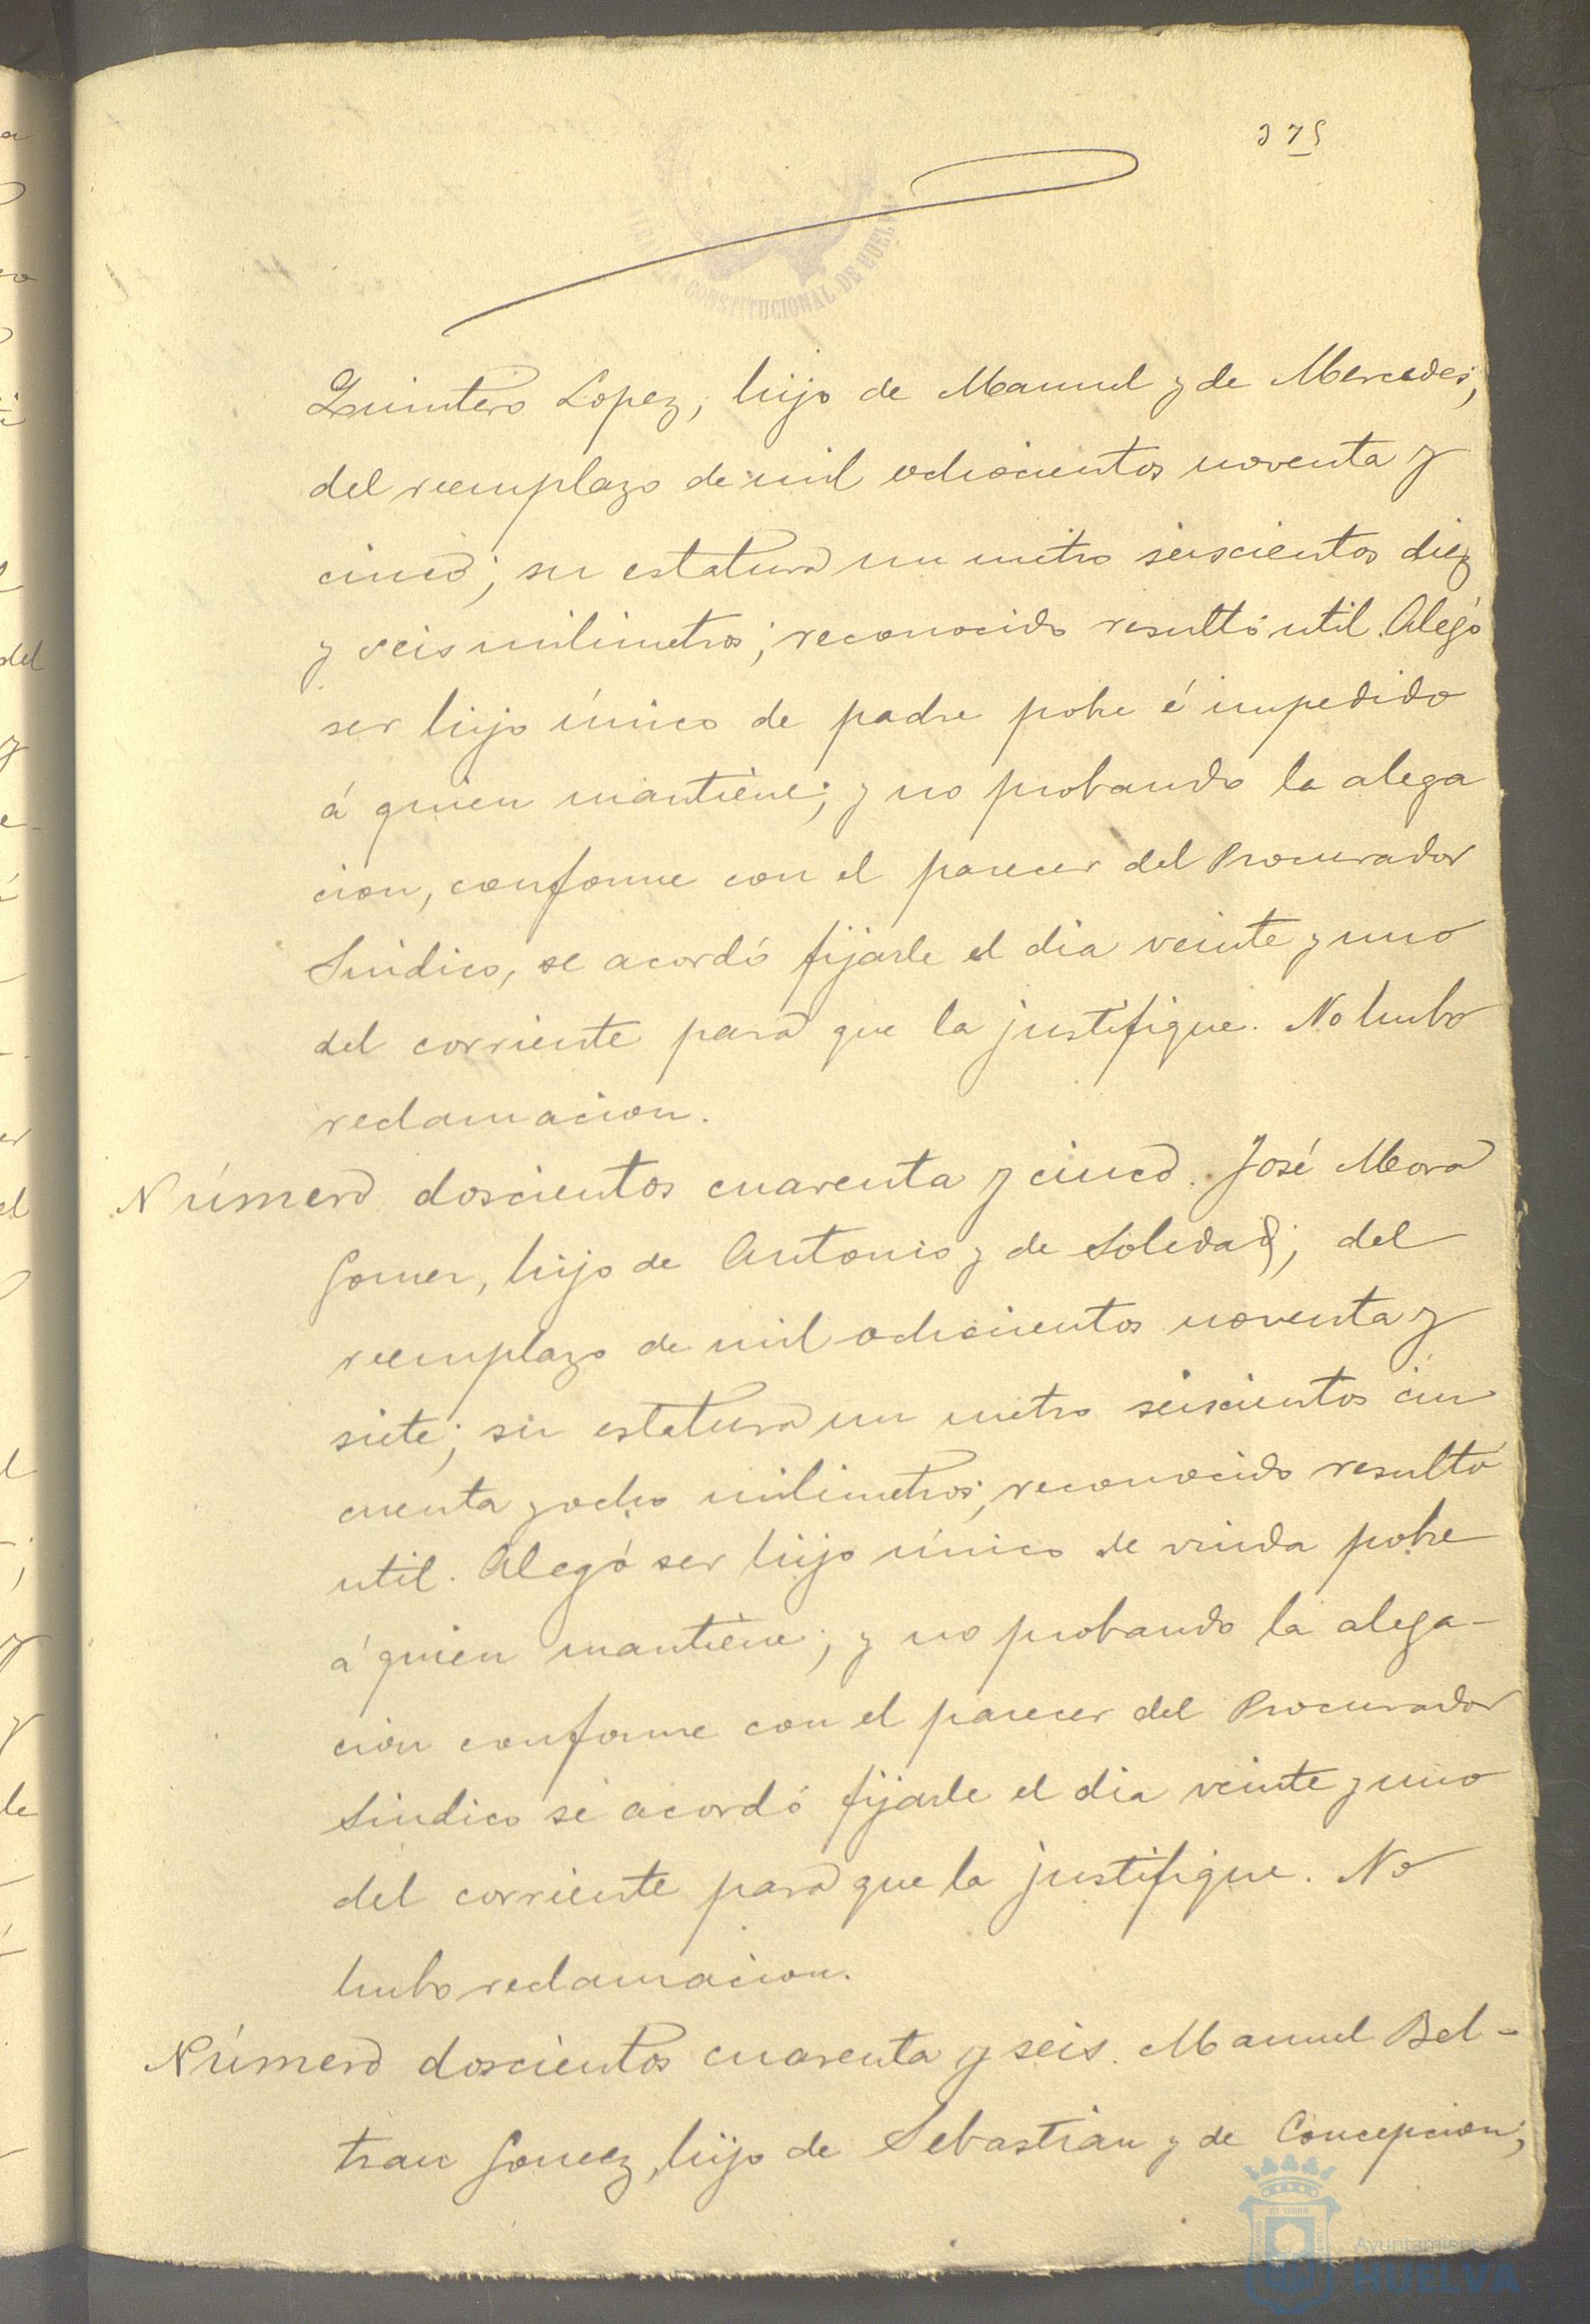 375
CONSTITUCIONAL DE HUELVA
Quintero Lopez, hijo de Manuel y de Mercedes;
del reemplazo de mil ochocientos noventa y
cinco; su estatura un metro seiscientos diez
y seis milimetros; reconocido resultó util. Alegó
ser hijo único de padre pobre é impedido
á quien mantiene; y no probando la alega
cion, conforme con el parecer del Procurador
Sindico, se acordó fijarle el dia veinte y uno
del corriente para que la justifique. No hubo
reclamacion.
Número doscientos cuarenta y cinco. José Mora
Gomer, hijo de Antonio y de Soledad; del
reemplazo de mil ochocientos noventa y
siete; su estatura un metro seiscientos cin
cuenta y ocho milimetros; reconocido resultó
util. Alegó ser hijo único de viuda pobre
á quien mantiene; y no probando la alega-
cion conforme con el parecer del Procurador
Sindico se acordó fijarle el dia veinte y uno
del corriente para que la justifique. No
hubo reclamacion.
Número doscientos cuarenta y seis. Manuel Bel-
tran Gomez, hijo de Sebastian y de Concepcion;
Ayuntamiento de
HUELVA